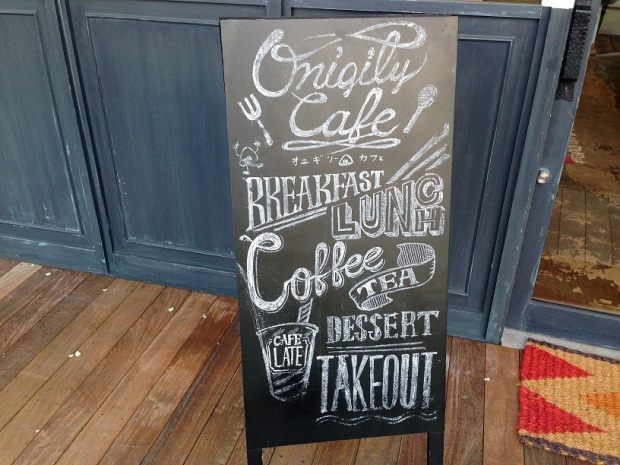 Onigily
Cafe
オニギリー カフェ
BREAKFAST
LUNCH
Coffee
TEA
CAFE
LATE
DESSERT
TAKEOUT